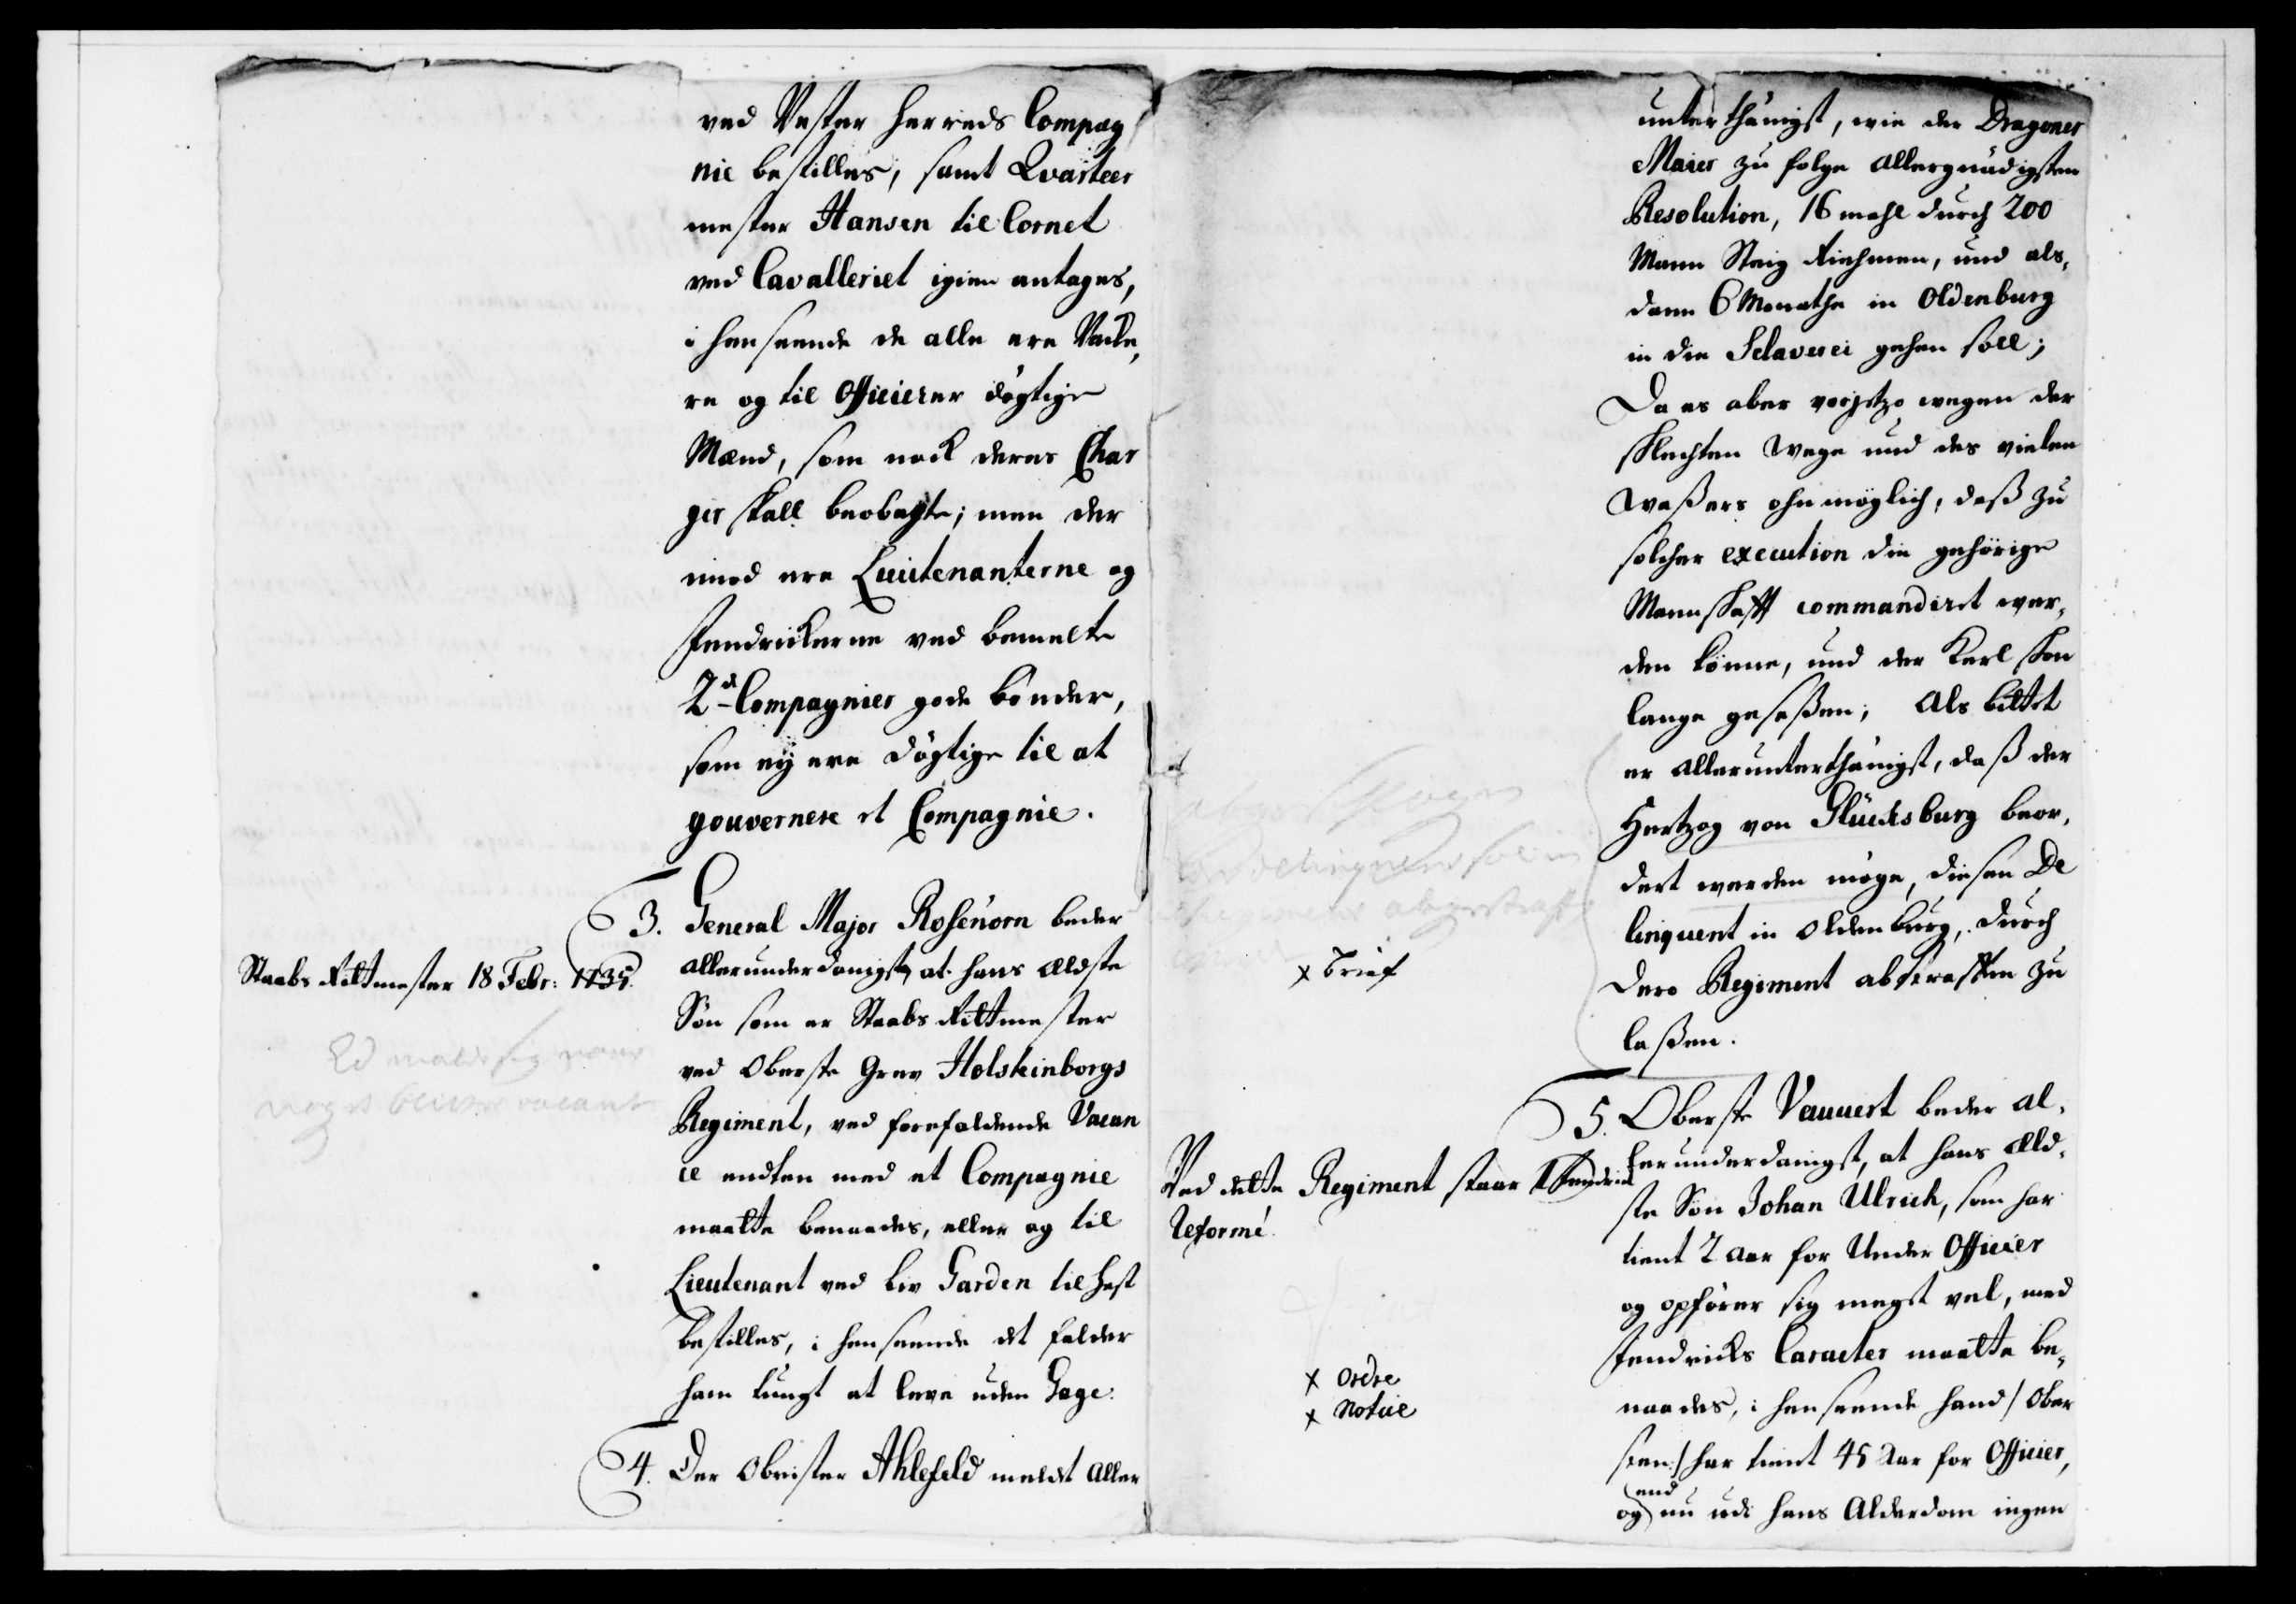 ved Vester Herreds Compag
nie bestilles, samt Qvarteer
mester Hansen til Cornet
ved Cavalleriet igien antages,
i henseende de alle ere
re og til Officierer dygtige
Mænd, som nock deres Char
ger skall beobagte; men der
imod ere Luutenanterne og
Fendrickerne ved bemelte
2de Compagnier gode bönder,
som ey ere dögtige til at
gouvernere et Compagnie.
3. General Major Rosenörn beder
allerunderdanigst, at hans ældste
Sön som er Staabs Rittmester
ved Oberste Grev Holsteinborgs
Regiment, ved forefaldende Vacan
ce endten med et Compagnie
maatte benaades, eller og til
Lieutenant ved Liv Garden til Hest
bestilles, i henseende det falder
ham tungt at leve uden Gage.
4. Der Obrister Ahlefeld meldet aller
Staabs Rittmester 18 Febr: 1735.
Ed malde sig naar
noget bliver vacant
unterthänigst, wie der Dragoner
Maier zu folge allergnädigsten
Resolution, 16 mahl durch 200
Mann Steig Riehmen, und als,
dann 6 Monathe in Oldenburg
in die Sclaverei gehen soll;
Da es aber vorjetzo wegen der
schlechten Wege und des vielen
Waßers ohnmöglich, daß zu
solcher execution die gehörige
Mannschafft commandiret wer,
den könne, und der Kerl schon
lange geseßen; Als bittet
er allerunterthänigst, daß der
Hertzog von Glücksburg beor,
dert werden möge, diesen De
linquent in Oldenburg, durch
Dero Regiment abstraffen zu
laßen.
x Brief
5. Oberste Vauuert beder al,
lerunderdanigst, at hans æld,
ste Sön Johan Ulrich, som har
tient 2 Aar for Under Officier
og opförer sig megst vel, med
Fendricks Caracter maatte be,
naades, i henseende hand / Ober
sten / har tient 45 Aar for Officier,
end
og nu udi hans Alderdom ingen
Ved dette Regiment staar 1 Fendrick
Reformé.
x Ordre
x Notice